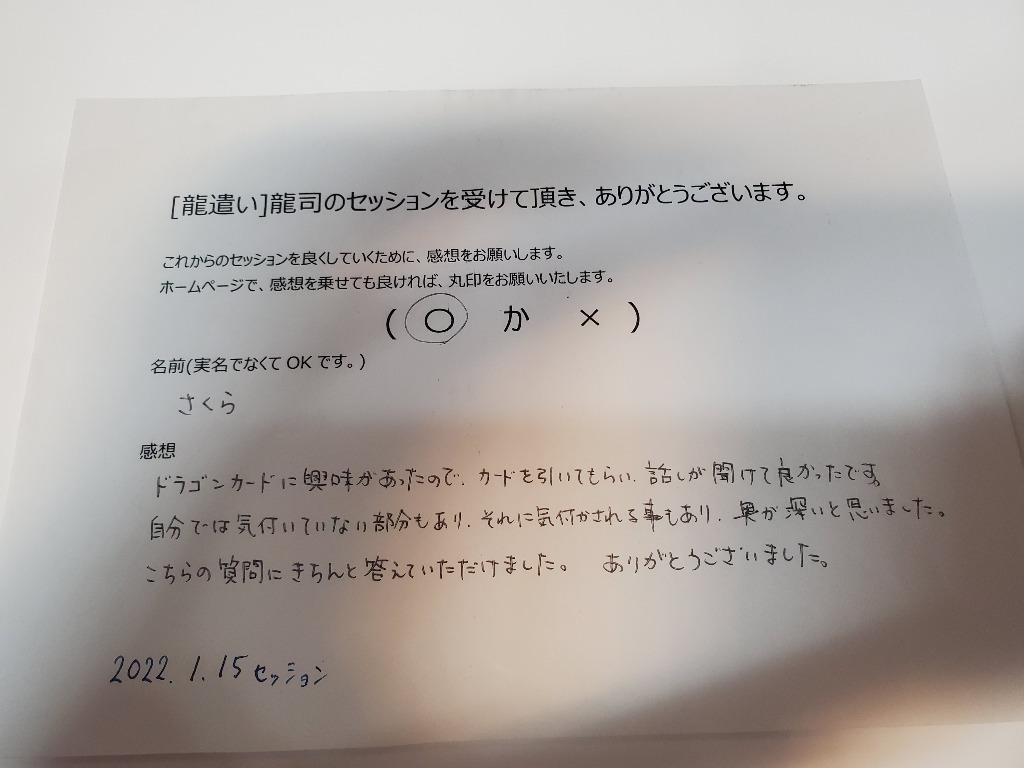 [龍遣い]龍司のセッションを受けて頂き、ありがとうございます。
これからのセッションを良くしていくために、感想をお願いします。
ホームページで、感想を乗せても良ければ、丸印をお願いいたします。
(〇 か ×)
名前(実名でなくて OK です。)
さくら
感想
ドラゴンカードに興味があったので、カードを引いてもらい、話しが聞けて良かったです。
自分では気付いていない部分もあり、それに気付かされる事もあり、奥が深いと思いました。
こちらの質問にきちんと答えていただけました。 ありがとうございました。
2022.1.15 セッション